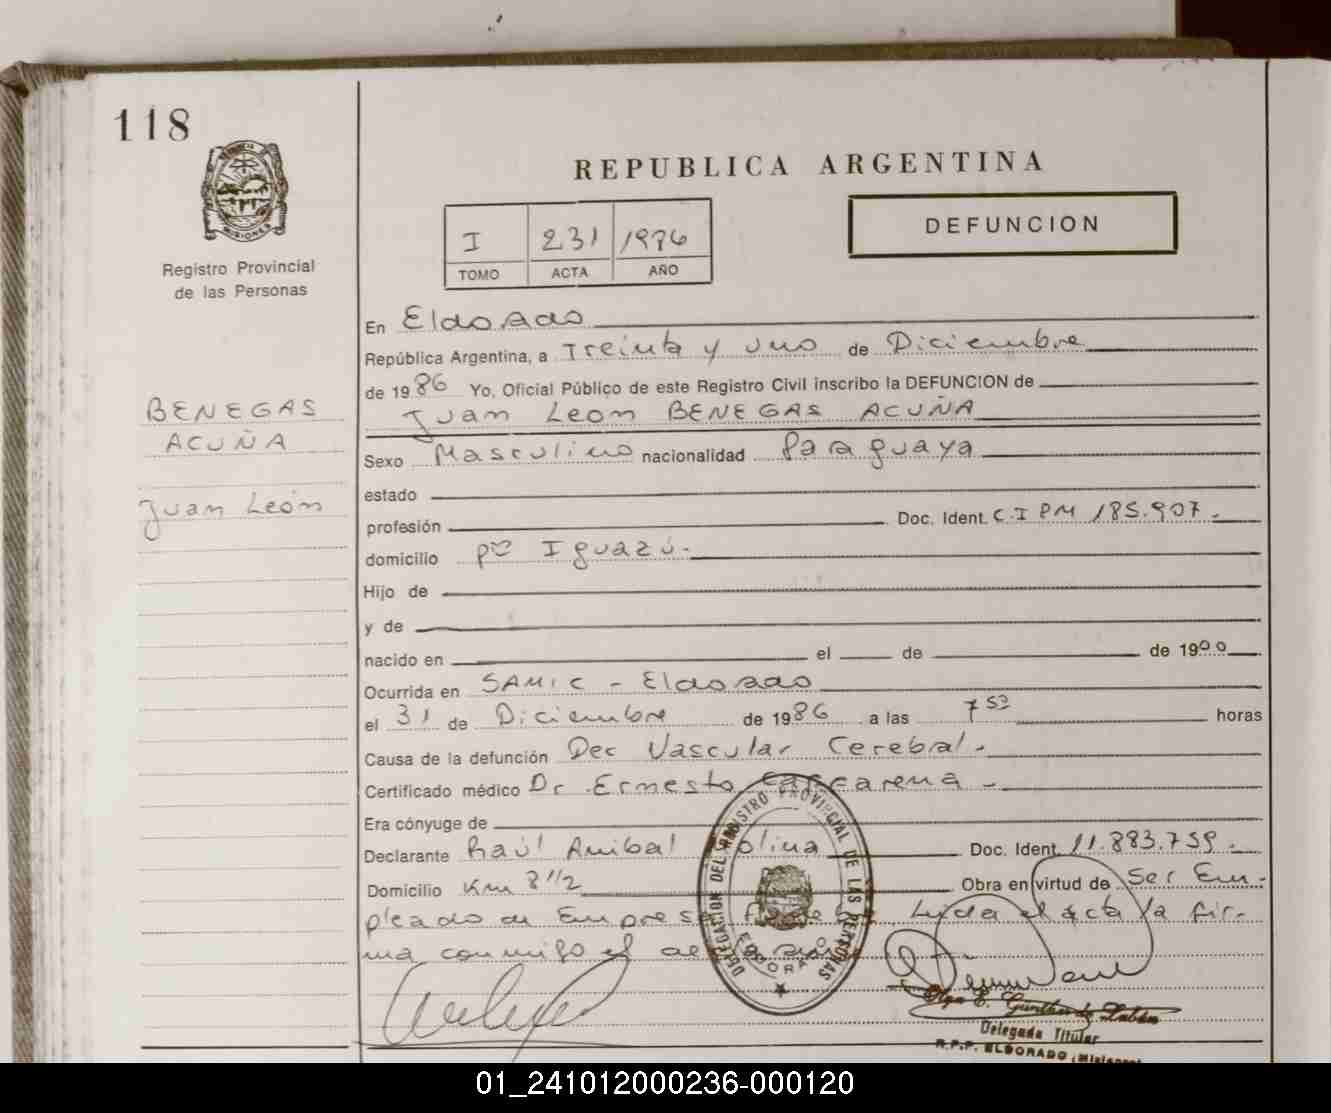 118
MISIONES
Registro Provincial
de las Personas
REPUBLICA ARGENTINA
I 231 1986
TOMO ACTA AÑO
DEFUNCION
En Eldorado
República Argentina, a Treinta y uno de Diciembre
de 1986 Yo, Oficial Público de este Registro Civil inscribo la DEFUNCION de
BENEGAS
ACUÑA
Juan León
Juan Leon BENEGAS ACUÑA
Sexo Masculino nacionalidad Paraguaya
estado
profesión Doc. Ident. C.I PM 185.907.
domicilio pto Iguazú.
Hijo de
y de
nacido en el de de 1900
Ocurrida en SAMIC - Eldorado
el 31 de Diciembre de 1986 a las 7 53 horas
Causa de la defunción Dec Vascular Cerebral.
Certificado médico Dr Ernesto
Era cónyuge de
Declarante Raúl Anibal Molina Doc. Ident. 11.883.759.
Domicilio Km 8 1/2 Obra en virtud de Ser Em-
pleado de Empresa Leida el acta la fir-
ma conmigo el declarante
DELEGACION DEL REGISTRO PROVINCIAL DE LAS PERSONAS
ELDORADO
Olga E. Günther de
Delegada Titular
R.P.P. ELDORADO (Misiones)
01_241012000236-000120